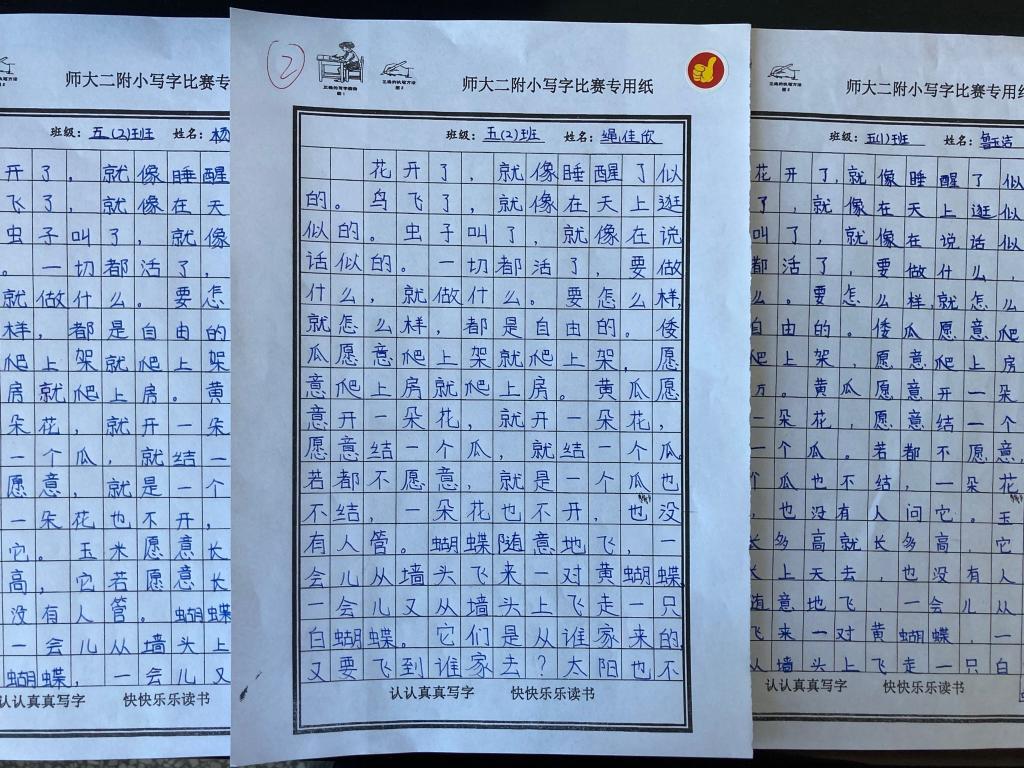 师大二附小写字比赛专
班级：五(2)班 姓名：杨
开了，就像睡醒
飞了，就像在天
虫子叫了，就像
。一切都活了，
就做什么。要怎
样，都是自由的
爬上架就爬上架
房就爬上房。黄
朵花，就开一朵
一个瓜，就结一
愿意，就是一个
一朵花也不开，
它。玉米愿意长
高，它若愿意长
没有人管。蝴蝶
一会儿从墙头上
蝴蝶，一会儿又
认认真真写字 快快乐乐读书
②
正确的写字姿势
图1
正确的执笔方法
图2
师大二附小写字比赛专用纸
班级：五(2)班 姓名：绳佳欣
花开了，就像睡醒了似
的。鸟飞了，就像在天上逛
似的。虫子叫了，就像在说
话似的。一切都活了，要做
什么，就做什么。要怎么样，
就怎么样，都是自由的。倭
瓜愿意爬上架就爬上架，愿
意爬上房就爬上房。黄瓜愿
意开一朵花，就开一朵花，
愿意结一个瓜，就结一个瓜
若都不愿意，就是一个瓜也
不结，一朵花也不开，也没
有人管。蝴蝶随意地飞，一
会儿从墙头飞来一对黄蝴蝶
一会儿又从墙头上飞走一只
白蝴蝶。它们是从谁家来的
又要飞到谁家去？太阳也不
认认真真写字 快快乐乐读书
师大二附小写字比赛专用
班级：五(1)班 姓名：
花开了，就像睡醒了似
了，就像在天上逛似
叫了，就像在说话似
都活了，要做什么，
么。要怎么样，就怎么
自由的。倭瓜愿意爬
爬上架，愿意爬上房
。黄瓜愿意开一朵
一朵花，愿意结一个
一个瓜。若都不愿意，
个瓜也不结，一朵花
，也没有人问它。玉
长多高就长多高，它
长上天去，也没有人
随意地飞，一会儿从
飞来一对黄蝴蝶，一
从墙头上飞走一只白
认认真真写字 快快乐乐读书